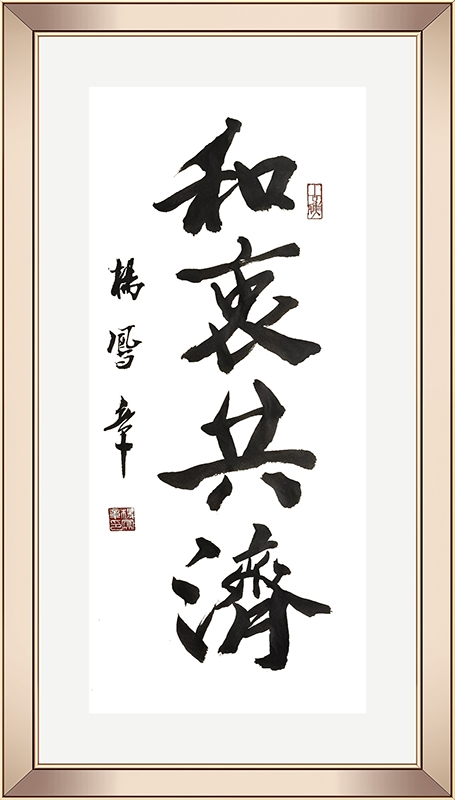 和衷共濟
楊鳳章